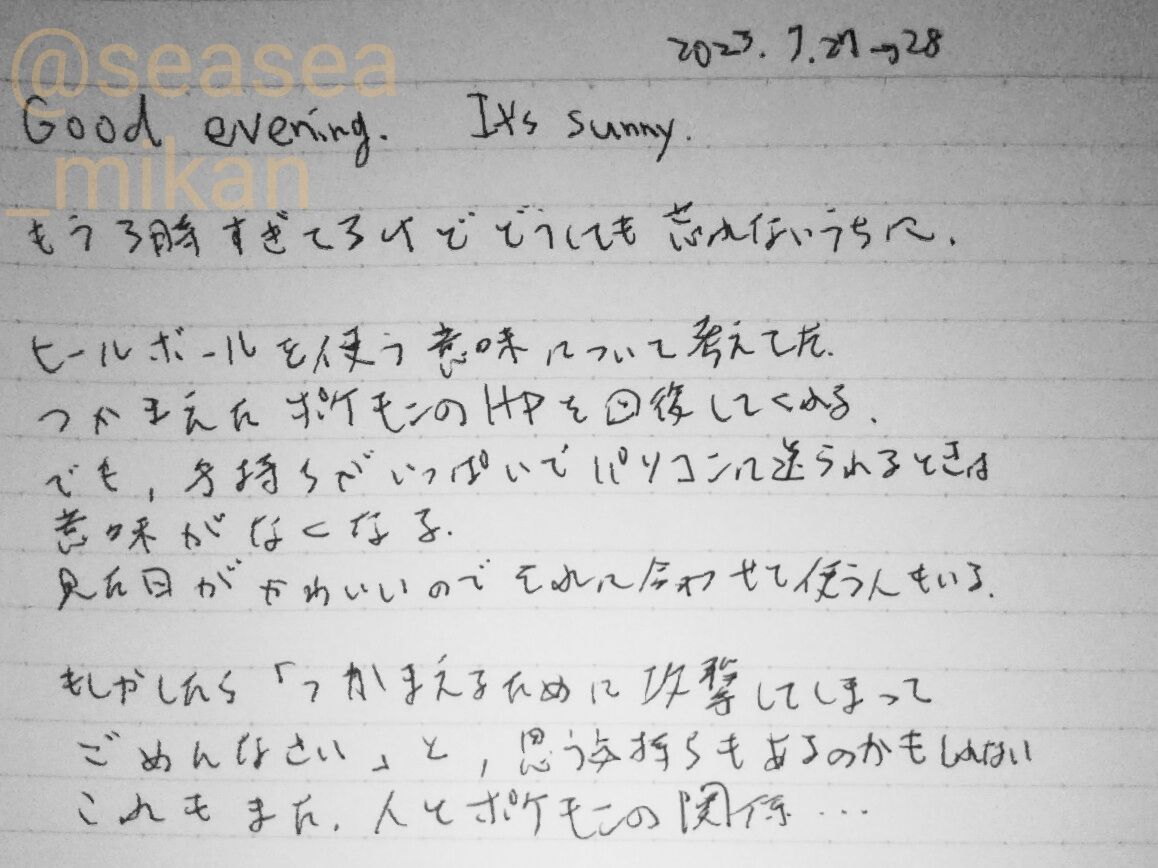 @seasea
_mikan
2023.7.27→28
Good evening. It's sunny.
もう3時すぎてるけどどうしても忘れないうちに.
ヒールボールを使う意味について考えてた.
つかまえたポケモンのHPを回復してくれる.
でも,手持ちがいっぱいでパソコンに送られるときは
意味がなくなる.
見た目がかわいいのでそれに合わせて使う人もいる.
もしかしたら「つかまえるために攻撃してしまって
ごめんなさい」と,思う気持ちもあるのかもしれない
これもまた,人とポケモンの関係...